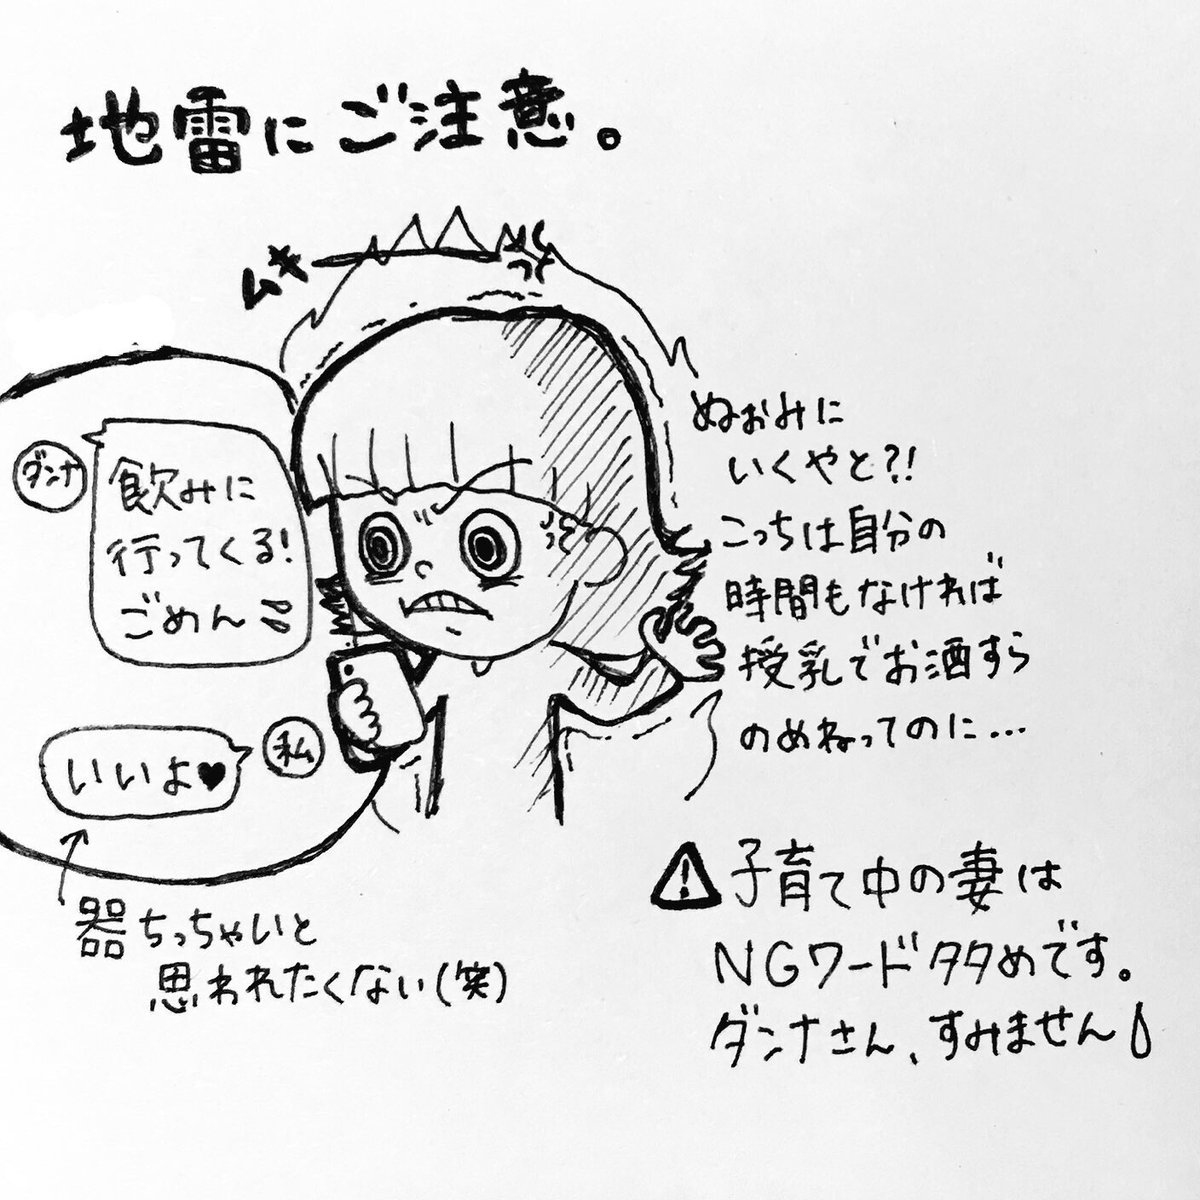 地雷にご注意。
ムキーッ
ダンナ
飲みに
行ってくる!
ごめん
私
いいよ♥
器ちっちゃいと
思われたくない(笑)
ぬぉみに
いくやと?!
こっちは自分の
時間もなければ
授乳でお酒すら
のめねってのに…
子育て中の妻は
NGワード多めです。
ダンナさん、すみません